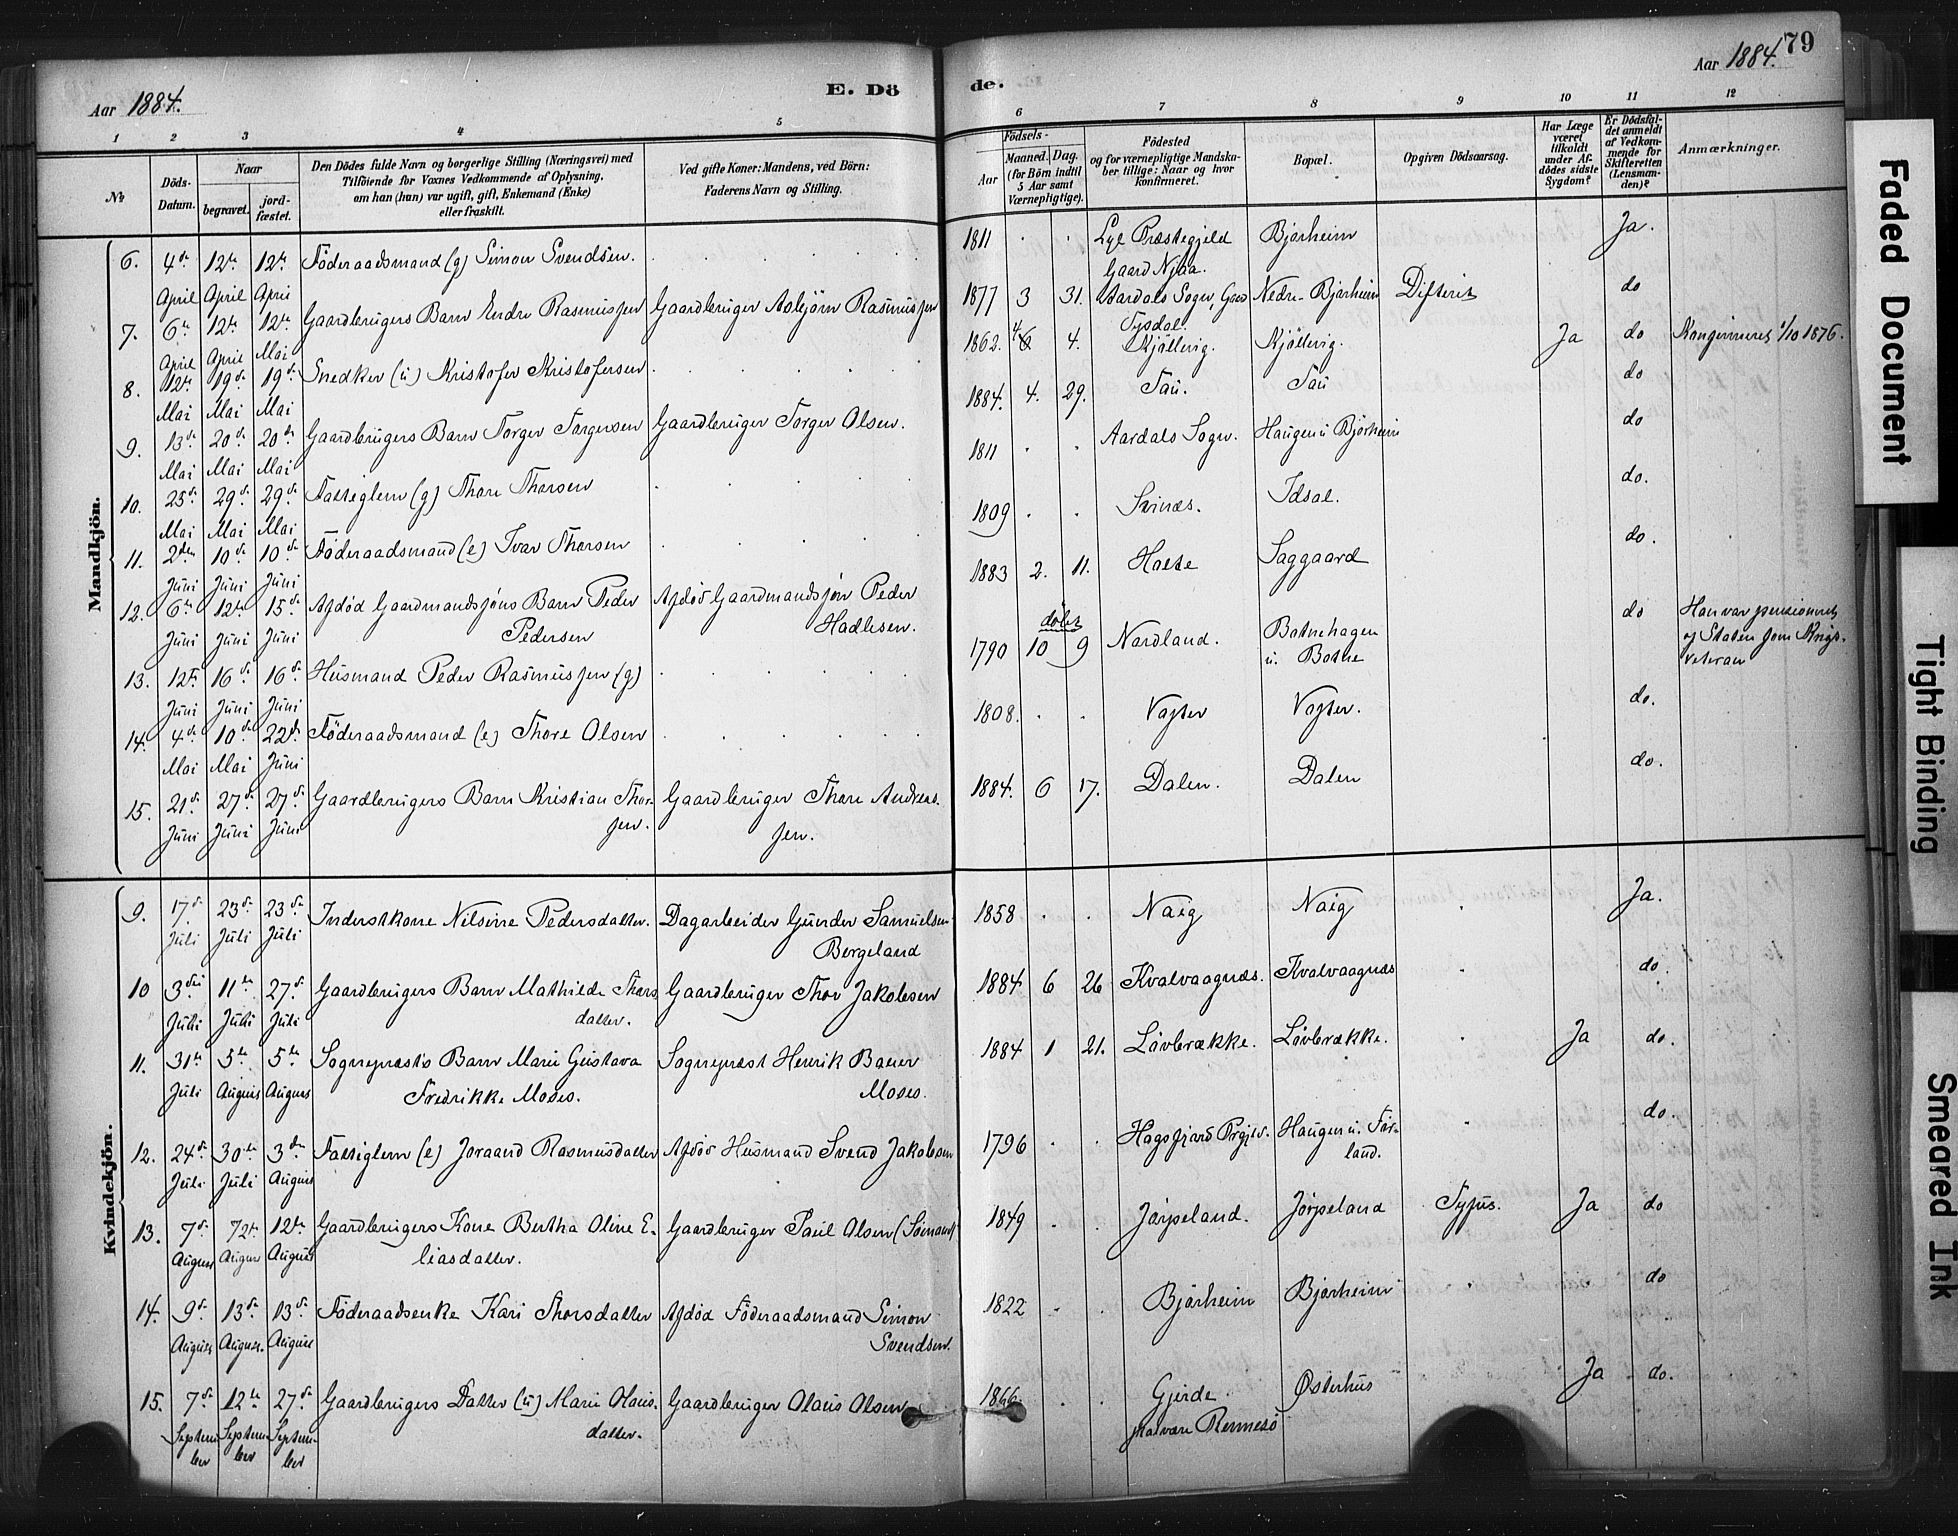 Aar 1884.
E. Dö
de.
Aar 1884.
79
1 2 3 4 5 6 7 8 9 10 11 12
№
Döds-Datum.
Naar
begravet.
jord-fæstet.
Den Dödes fulde Navn og borgerlige Stilling (Næringsvei) med
Tilföiende for Voxnes Vedkommende af Oplysning,
om han (hun) var ugift, gift, Enkemand (Enke)
eller fraskilt.
Ved gifte Koner: Mandens, ved Börn:
Faderens Navn og Stilling.
Födsels-
Aar
Maaned. Dag.
(for Börn indtil
5 Aar samt
Værnepligtige).
Födested
og for værnepligtige Mandska-
ber tillige: Naar og hvor
konfirmeret.
Bopæl.
Opgiven Dödsaarsag.
Har Læge
været
tilkaldt
under Af-
dödes sidste
Sygdom?
Er Dödsfal-
det anmeldt
af Vedkom-
mende for
Skifteretten
(Lensman-
den)?
Anmærkninger.
Mandkjön.
6. 4de April 12te April 12te April Föderaadsmand (g) Simon Svendsen. 1811 Lye Præstegjeld Gaard Njaa. Bjørheim Ja.
7. 6te April 12te April 12te Mai Gaardbrugers Barn Endre Rasmussen Gaardbruger Asbjørn Rasmussen 1877 3 31. Aardals Sogn, Gaard Tysdal. Nedre-Bjørheim Difterit do
8. 12te Mai 19de Mai 19de Mai Snedker (u) Kristofer Kristofersen 1862. 4 4. Kjøllevig. Kjøllevig. Ja do Konfirmeret 1/10 1876.
9. 13de Mai 20de Mai 20de Mai Gaardbrugers Barn Torger Torgersen Gaardbruger Torger Olsen. 1884. 4. 29. Tau. Tau do
10. 25de Mai 29de Mai 29de Mai Fattiglem (g) Thore Thorsen 1811 Aardals Sogn. Haugen u Bjørheim do
11. 2den Juni 10de Juni 10de Juni Föderaadsmand (e) Ivar Thorsen 1809 Svinæs. Idsal. do.
12. 6te Juni 12te Juni 15de Juni Afdød Gaardmandssøns Barn Peder Pedersen Afdød Gaardmandssøn Peder Hadlesen. 1883 2. 11. Holte Saggaard do.
13. 12te Juni 16de Juni 16de Juni Husmand Peder Rasmussen (g) 1790 10 døbt 9 Nordland. Botnehagen u. Botne do Han var pensioneret af Staten som Krigs-veteran
14. 4de Mai 10de Mai 22de Juni Föderaadsmand (e) Thore Olsen 1808. Vagter Vagter. do.
15. 21de Juni 27de Juni 27de Juni Gaardbrugers Barn Kristian Thorsen. Gaardbruger Thore Andreassen. 1884. 6 17. Dalen. Dalen do.
Kvindekjön.
9. 17de Juli 23de Juli 23de Juli Inderstkone Nilsine Pedersdatter. Dagarbeider Gunder Samuelsen Bergeland 1858 Naig Naig Ja.
10 3die Juli 11te Juli 27de Juli Gaardbrugers Barn Mathilde Thorsdatter. Gaardbruger Thor Jakobsen 1884 6 26 Kvalvaagnæs. Kvalvaagnæs do.
11. 31te Juli 5te August 5te August Sogneprests Barn Marie Gustava Fredrikke Moses. Sogneprest Henrik Baeer Moses. 1884 1 21. Løvbrække. Løvbrække. Ja do.
12. 24de Juli 30te Juli 3de August Fattiglem (e) Joraand Rasmusdatter Afdød Husmand Svend Jakobsen 1796 Høgsfjord Prgjld. Haugen u. Førland. do.
13. 7de August 12te August 12te August Gaardbrugers Kone Bertha Oline Eliasdatter. Gaardbruger Paul Olsen (Sømand) 1849 Jørpeland. Jørpeland Tyfus. Ja do
14. 9de August 13de August. 13de August Föderaadsenke Kari Thorsdatter Afdød Föderaadsmand Simon Svendsen. 1822 Bjørheim Bjørheim do
15. 7de September 12te September 27de September Gaardbrugers Datter (u) Marie Olausdatter. Gaardbruger Olaus Olsen 1866 Gjerde Rennesø Østerhus Ja do.
Faded Document
Tight Binding
Smeared Ink